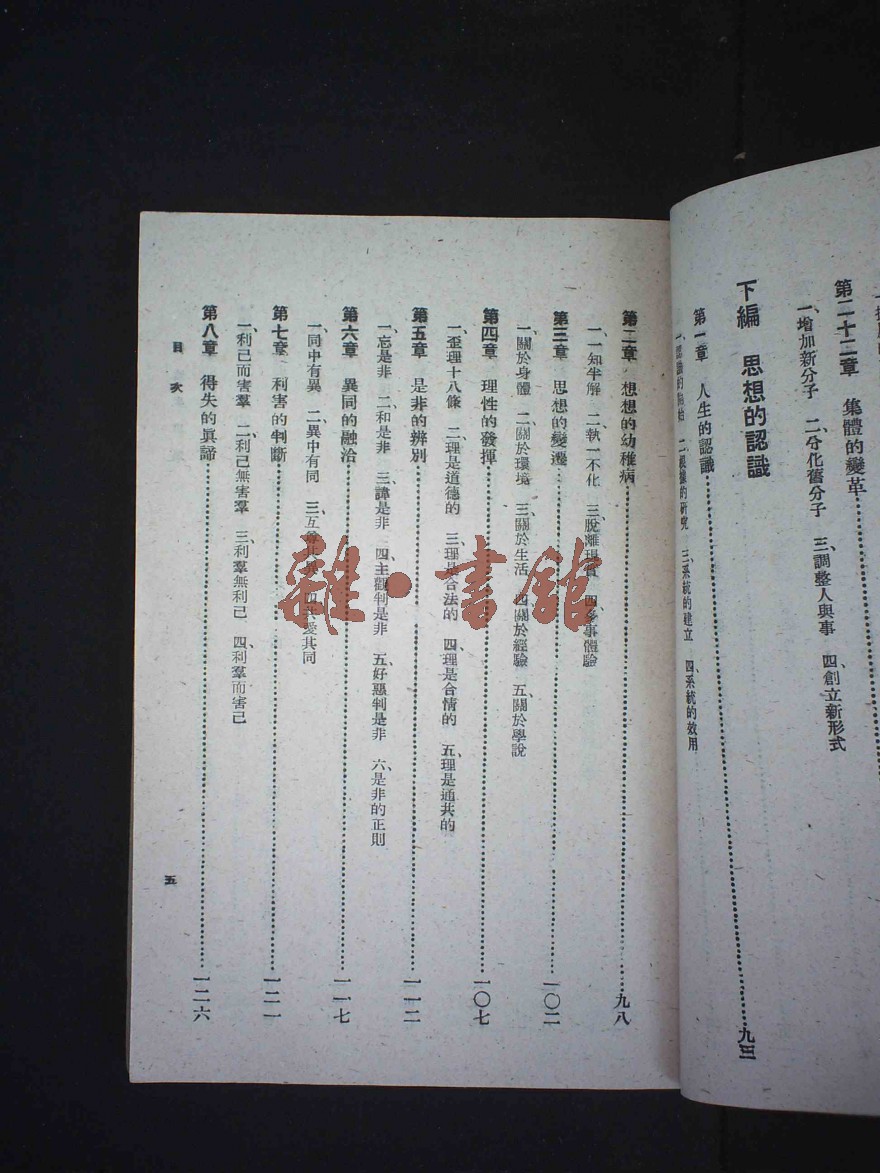 第二十二章 集體的變革
一、增加新分子 二、分化舊分子 三、調整人與事 四、創立新形式
下編 思想的認識 九三
第一章 人生的認識
三、系統的建立 四、系統的效用
第二章 想想的幼稚病 九八
一、一知半解 二、執一不化 三、脫離現實 四、多事體驗
第三章 思想的變遷 一〇二
一、關於身體 二、關於環境 三、關於生活 四、關於經驗 五、關於學說
第四章 理性的發揮 一〇七
一、歪理十八條 二、理是道德的 三、理是合法的 四、理是合情的 五、理是通共的
第五章 是非的辨別 一一二
一、忘是非 二、和是非 三、諱是非 四、主觀判是非 五、好惡判是非 六、是非的正則
第六章 異同的融洽 一一七
一、同中有異 二、異中有同 三、互尊其異 四、共愛共同
第七章 利害的判斷 一二一
一、利己而害羣 二、利己無害羣 三、利羣無利己 四、利羣而害己
第八章 得失的眞諦 一二六
目次
五
雜·書館